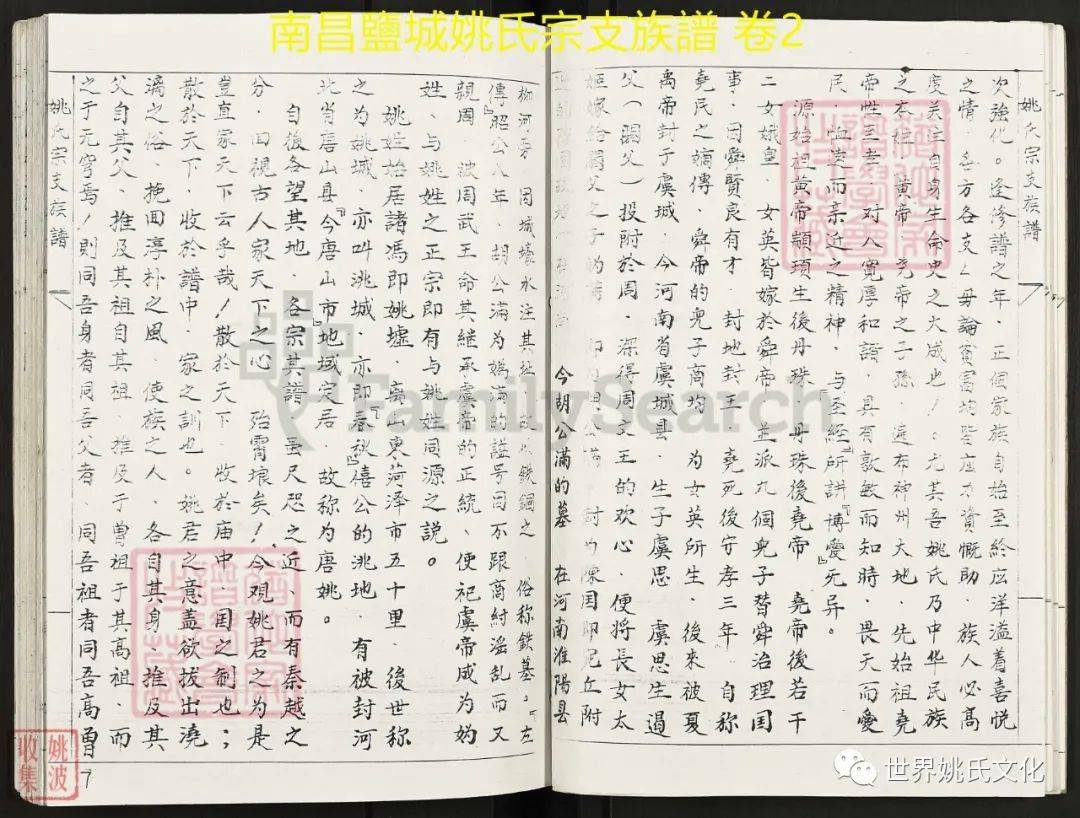 南昌鹽城姚氏宗支族譜 卷2
姚氏宗支族譜
次強化。逢修譜之年．正個家族自始至給应洋溢着喜悦
之情．各方各支ㄥ毋論貧富均皆應力資慨助．族人必高
度关注自身生倫史之大成也！：尤其吾姚氏乃中华民族
之本排．黄帝．尧帝之子孫．遍布神州大地．先始祖堯
帝性至孝．对人寛厚和諧．具有敦敏而知時．畏天而愛
民．血遠而亲近之精神．与『圣经』所讲『博愛』无异。
源始祖黄帝顓頊生後丹珠．丹珠後堯帝．堯帝後若干
二女娥皇．女英皆嫁於舜帝．並派九個兒子替舜治理国
事．因舜賢良有才．封地封王．堯死後守孝三年．自称
堯民之嫡傳．舜帝的兒子商均．为女英所生．後來被夏
禹帝封于虞城．今河南省虞城县．生子虞思．虞思生遏
父（閼父）投附於周．深得周文王的欢心．便將長女太
姬嫁給閼父之子
封为陳国即宛丘附
今胡公满的墓．在河南淮陽县
柳河旁．因城壕水注其址．故以鉄錮之．俗称鉄墓。『左
傳』昭公八年．胡公满为嬀满的謚号因不跟商紂滛乱而又
親周．被周武王命其继承虞帝的正統、便祀虞帝成为妫
姓、与姚姓之正宗即有与姚姓同源之説。
姚姓始居諸馮即姚墟．离山東菏泽市五十里．後世称
之为姚城．亦叫洮城．亦即『春秋』僖公的洮地．有被封河
北省唐山县『今唐山市』地域定居．故称为唐姚。
自後各望其地．各宗其譜．虽尺咫之近、而有秦越之
分．回視古人家天下之心．殆霄埌矣！今观姚君之为是
豈直家天下云乎哉！散於天下．收於庙中．国之制也；
散於天下．收於譜中．家之訓也。姚君之意盖欲拔出澆
漓之俗．挽囬淳朴之風．使族之人．各自其身．推及其
父自其父、推及其祖自其祖．推及于曾祖于其高祖．而
之于无穷焉！則同吾身者同吾父者．同吾祖者同吾高曽
姚氏宗支族譜
7
姚波
收集
FamilySearch
世界姚氏文化